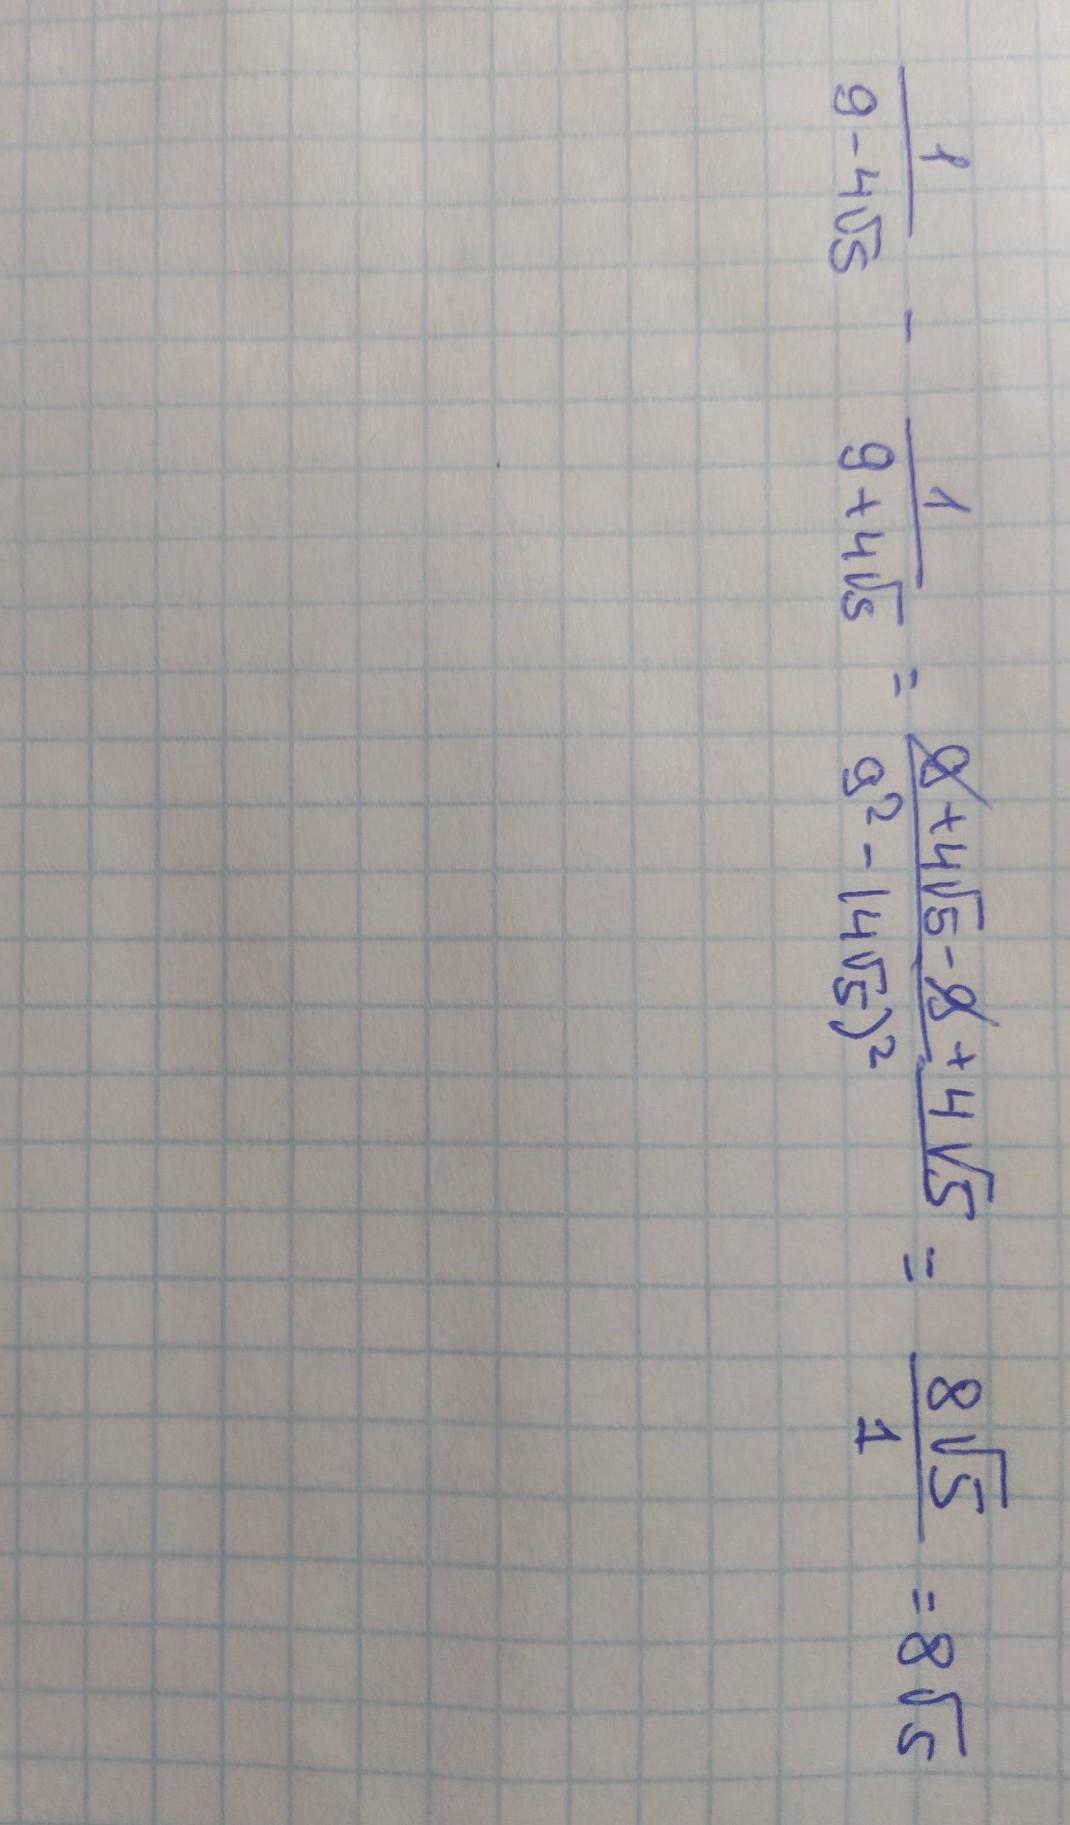 1/(9-4√5) - 1/(9+4√5) = (9+4√5-9+4√5)/(9²-(4√5)²) = 8√5/1 = 8√5